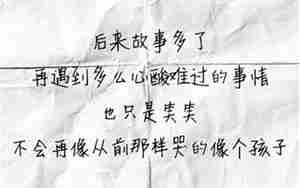 后来故事多了
再遇到多么心酸难过的事情
也只是笑笑
不会再像从前那样哭的像个孩子